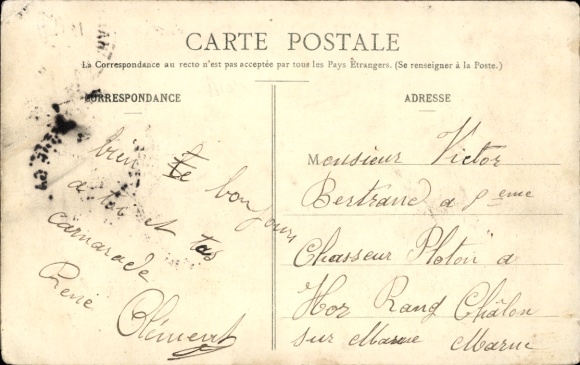 CARTE POSTALE
La Correspondance au recto n'est pas acceptée par tous les Pays Étrangers. (Se renseigner à la Poste.)
CORRESPONDANCE
bien le bonjours
a toi et tas
camarade
René
Clément
ADRESSE
Monsieur Victor
Bertrand a 9eme
Chasseur Ploton a
Hor Rang Châlon
sur Marne Marne